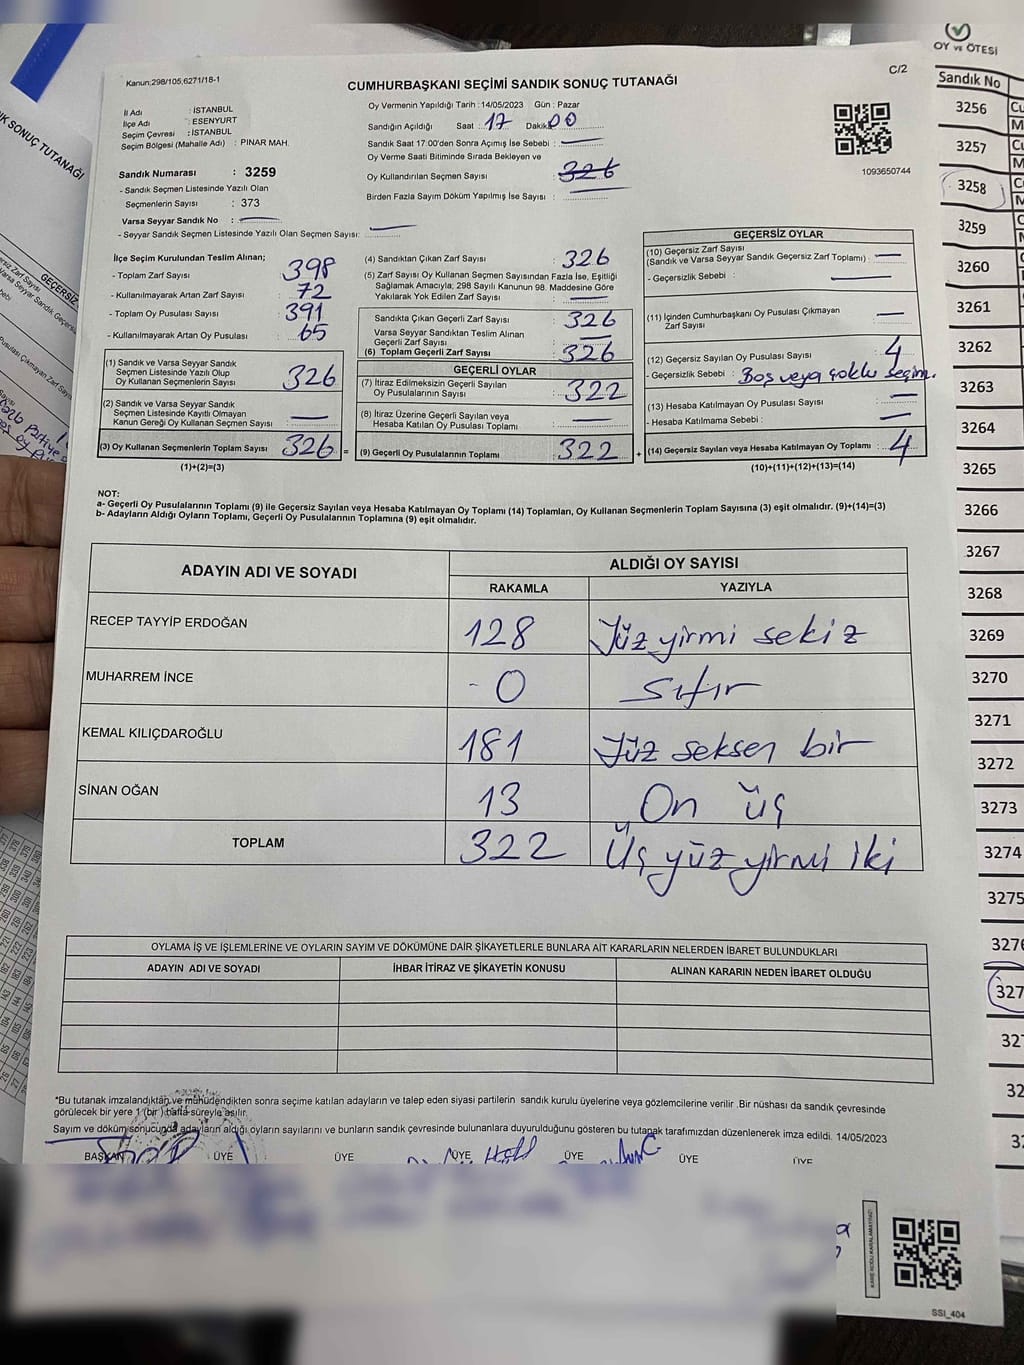 OY VE ÖTESİ
Kanun:298/105,6271/18-1
C/2
CUMHURBAŞKANI SEÇİMİ SANDIK SONUÇ TUTANAĞI
İl Adı : İSTANBUL
İlçe Adı : ESENYURT
Seçim Çevresi : İSTANBUL
Seçim Bölgesi (Mahalle Adı) : PINAR MAH.
Sandık Numarası : 3259
- Sandık Seçmen Listesinde Yazılı Olan
Seçmenlerin Sayısı : 373
Varsa Seyyar Sandık No :
- Seyyar Sandık Seçmen Listesinde Yazılı Olan Seçmen Sayısı:
Oy Vermenin Yapıldığı Tarih : 14/05/2023 Gün : Pazar
Sandığın Açıldığı Saat : 17 Dakika: 00
Sandık Saat 17:00'den Sonra Açımış İse Sebebi :
Oy Verme Saati Bitiminde Sırada Bekleyen ve
Oy Kullandırılan Seçmen Sayısı : 326
Birden Fazla Sayım Döküm Yapılmış İse Sayısı :
1093650744
İlçe Seçim Kurulundan Teslim Alınan;
- Toplam Zarf Sayısı : 398
- Kullanılmayarak Artan Zarf Sayısı : 72
- Toplam Oy Pusulası Sayısı : 391
- Kullanılmayarak Artan Oy Pusulası : 65
(1) Sandık ve Varsa Seyyar Sandık
Seçmen Listesinde Yazılı Olup
Oy Kullanan Seçmenlerin Sayısı : 326
(2) Sandık ve Varsa Seyyar Sandık
Seçmen Listesinde Kayıtlı Olmayan
Kanun Gereği Oy Kullanan Seçmen Sayısı :
(3) Oy Kullanan Seçmenlerin Toplam Sayısı : 326 =
(1)+(2)=(3)
(4) Sandıktan Çıkan Zarf Sayısı : 326
(5) Zarf Sayısı Oy Kullanan Seçmen Sayısından Fazla İse, Eşitliği
Sağlamak Amacıyla, 298 Sayılı Kanunun 98. Maddesine Göre
Yakılarak Yok Edilen Zarf Sayısı :
Sandıkta Çıkan Geçerli Zarf Sayısı : 326
Varsa Seyyar Sandıktan Teslim Alınan
Geçerli Zarf Sayısı :
(6) Toplam Geçerli Zarf Sayısı : 326
GEÇERLİ OYLAR
(7) İtiraz Edilmeksizin Geçerli Sayılan
Oy Pusulalarının Sayısı : 322
(8) İtiraz Üzerine Geçerli Sayılan veya
Hesaba Katılan Oy Pusulası Toplamı :
(9) Geçerli Oy Pusulalarının Toplamı : 322 +
GEÇERSİZ OYLAR
(10) Geçersiz Zarf Sayısı
(Sandık ve Varsa Seyyar Sandık Geçersiz Zarf Toplamı) :
- Geçersizlik Sebebi :
(11) İçinden Cumhurbaşkanı Oy Pusulası Çıkmayan
Zarf Sayısı :
(12) Geçersiz Sayılan Oy Pusulası Sayısı : 4
- Geçersizlik Sebebi : Boş veya çoklu seçim.
(13) Hesaba Katılmayan Oy Pusulası Sayısı :
- Hesaba Katılmama Sebebi :
(14) Geçersiz Sayılan veya Hesaba Katılmayan Oy Toplamı : 4
(10)+(11)+(12)+(13)=(14)
NOT:
a- Geçerli Oy Pusulalarının Toplamı (9) ile Geçersiz Sayılan veya Hesaba Katılmayan Oy Toplamı (14) Toplamları, Oy Kullanan Seçmenlerin Toplam Sayısına (3) eşit olmalıdır. (9)+(14)=(3)
b- Adayların Aldığı Oyların Toplamı, Geçerli Oy Pusulalarının Toplamına (9) eşit olmalıdır.
ADAYIN ADI VE SOYADI ALDIĞI OY SAYISI
RAKAMLA YAZIYLA
RECEP TAYYİP ERDOĞAN 128 Yüz yirmi sekiz
MUHARREM İNCE - 0 Sıfır
KEMAL KILIÇDAROĞLU 181 Yüz seksen bir
SİNAN OĞAN 13 On üç
TOPLAM 322 Üç yüz yirmi iki
OYLAMA İŞ VE İŞLEMLERİNE VE OYLARIN SAYIM VE DÖKÜMÜNE DAİR ŞİKAYETLERLE BUNLARA AİT KARARLARIN NELERDEN İBARET BULUNDUKLARI
ADAYIN ADI VE SOYADI İHBAR İTİRAZ VE ŞİKAYETİN KONUSU ALINAN KARARIN NEDEN İBARET OLDUĞU
*Bu tutanak imzalandıktan ve mühürlendikten sonra seçime katılan adayların ve talep eden siyasi partilerin sandık kurulu üyelerine veya gözlemcilerine verilir .Bir nüshası da sandık çevresinde
görülecek bir yere 1 (bir ) hafta süreyle asılır.
Sayım ve döküm sonucunda adayların aldığı oyların sayılarını ve bunların sandık çevresinde bulunanlara duyurulduğunu gösteren bu tutanak tarafımızdan düzenlenerek imza edildi. 14/05/2023
BAŞKAN ÜYE ÜYE ÜYE ÜYE ÜYE ÜYE
SSI_404
Sandık No
3256
3257
3258
3259
3260
3261
3262
3263
3264
3265
3266
3267
3268
3269
3270
3271
3272
3273
3274
3275